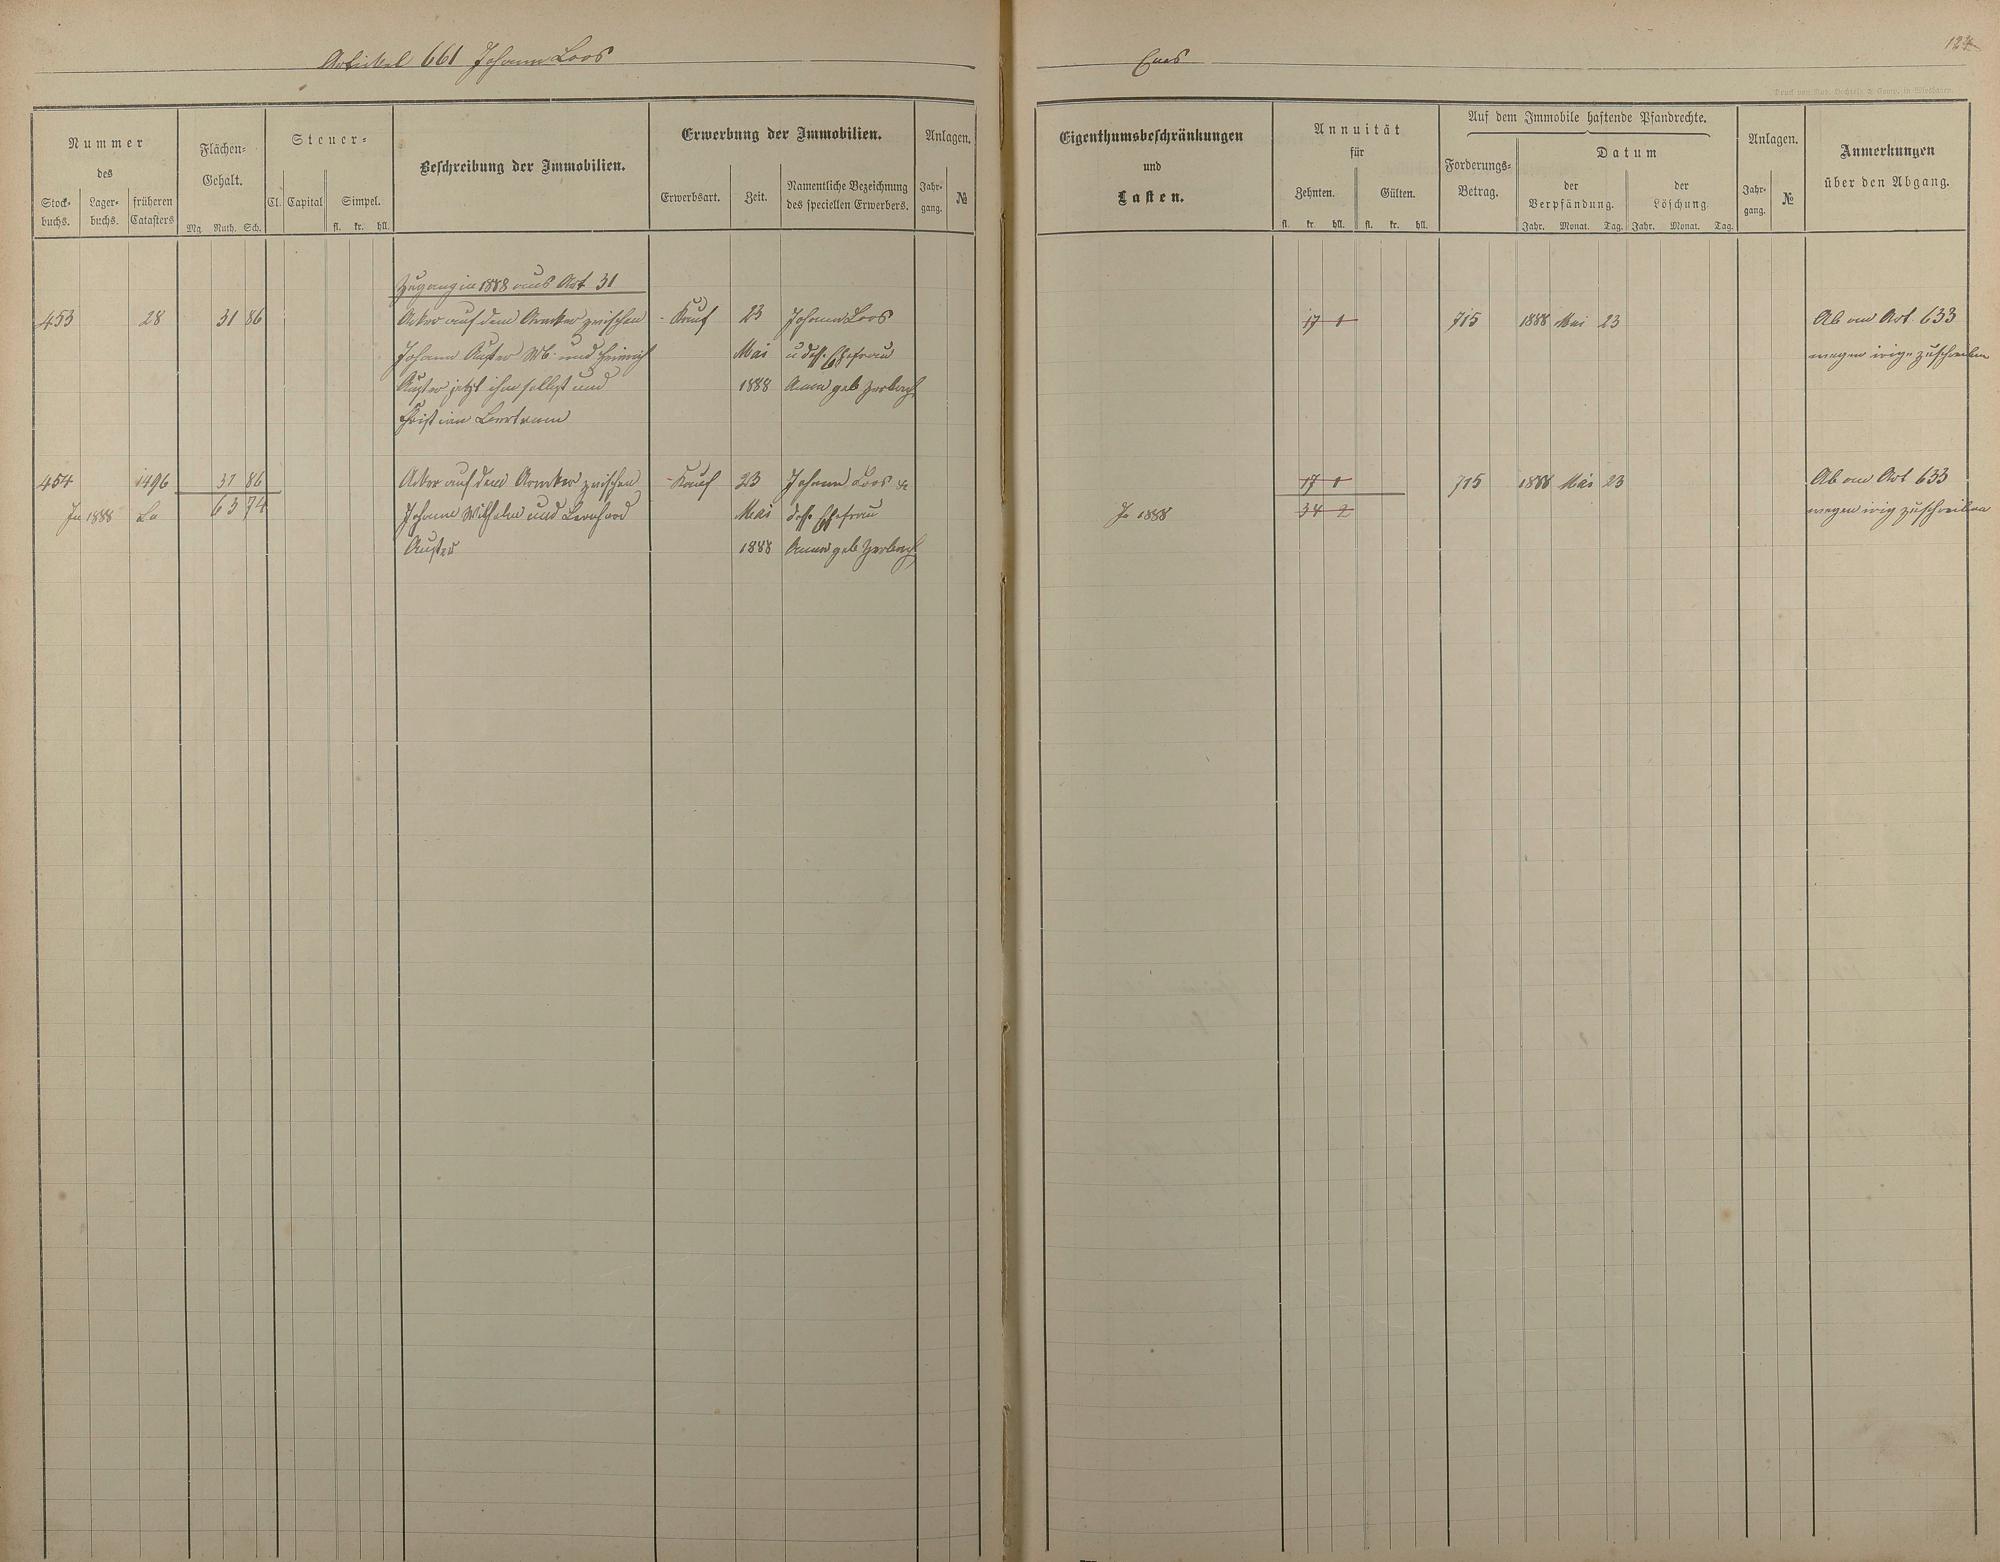 Artickel 661 Johann Loos
Ems
124
Nummer
des
Stock-
buchs.
Lager-
buchs.
früheren
Catasters
Flächen-
Gehalt.
Mg. Ruth. Sch.
Steuer-
Cl. Capital Simpel.
fl. kr. hll.
Beschreibung der Immobilien.
Erwerbung der Immobilien.
Erwerbsart. Zeit.
Namentliche Bezeichnung
des speciellen Erwerbers.
Anlagen.
Jahr-
gang.
№
Druck von Rud. Bechtold & Comp. in Wiesbaden.
Eigenthumsbeschränkungen
und
Lasten.
Annuität
für
Zehnten. Gülten.
fl. kr. hll. fl. kr. hll.
Auf dem Immobile haftende Pfandrechte.
Forderungs-
Betrag.
Datum
der
Verpfändung.
der
Löschung
Jahr. Monat. Tag. Jahr. Monat. Tag.
Anlagen.
Jahr-
gang.
№
Anmerkungen
über den Abgang.
Zugang in 1888 aus Art 31
453 28 31 86 Acker auf dem zwischen Kauf 23 Johann Loos
17 1 715 1888 Mai 23 Ab an Art. 633
Johann Auster Wb. und Heinrich Mai u dess. Ehefrau
wegen irig. zuschreiben
Auster jetzt ihm selbst und 1888 Anna geb Zerbach
Christian Bertram
454 1496 31 86 Acker auf dem zwischen Kauf 23 Johann Loos &
17 1 715 1888 Mai 23 Ab an Art 633
In 1888 La 63 74 Johann Wilhelm und Bernhard Mai dess. Ehefrau
In 1888 34 2 wegen irig zuschreiben
Auster 1888 Anna geb Zerbach